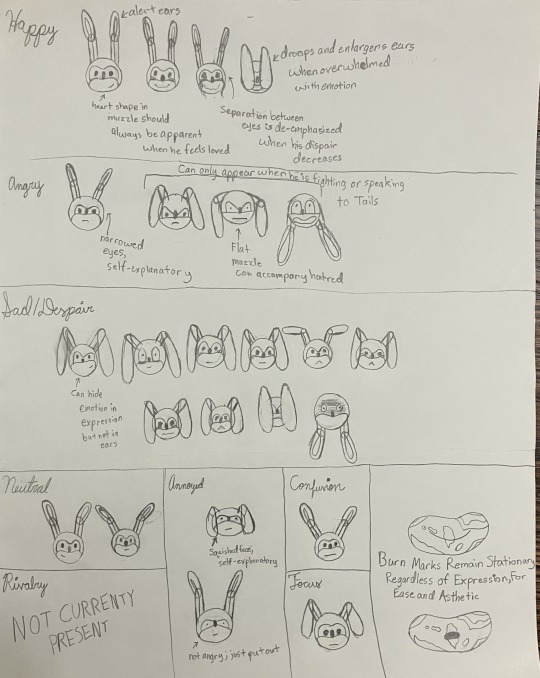 Happy
alert ears
droops and enlargens ears
when overwhelmed
with emotion
heart shape in
muzzle should
always be apparent
when he feels loved
Separation between
eyes is de-emphasized
when his dispair
decreases
Angry
Can only appear when he is fighting or speaking
to Tails
narrowed
eyes,
self-explanatory
Flat
muzzle
can accompany hatred
Sad/Despair
Can hide
emotion in
expression
but not in
ears
Neutral
Annoyed
Squished face,
self-explanatory
not angry; just put out
Confusion
Focus
Rivalry
NOT CURRENTY
PRESENT
Burn Marks Remain Stationary
Regardless of Expression, For
Ease and Asthetic